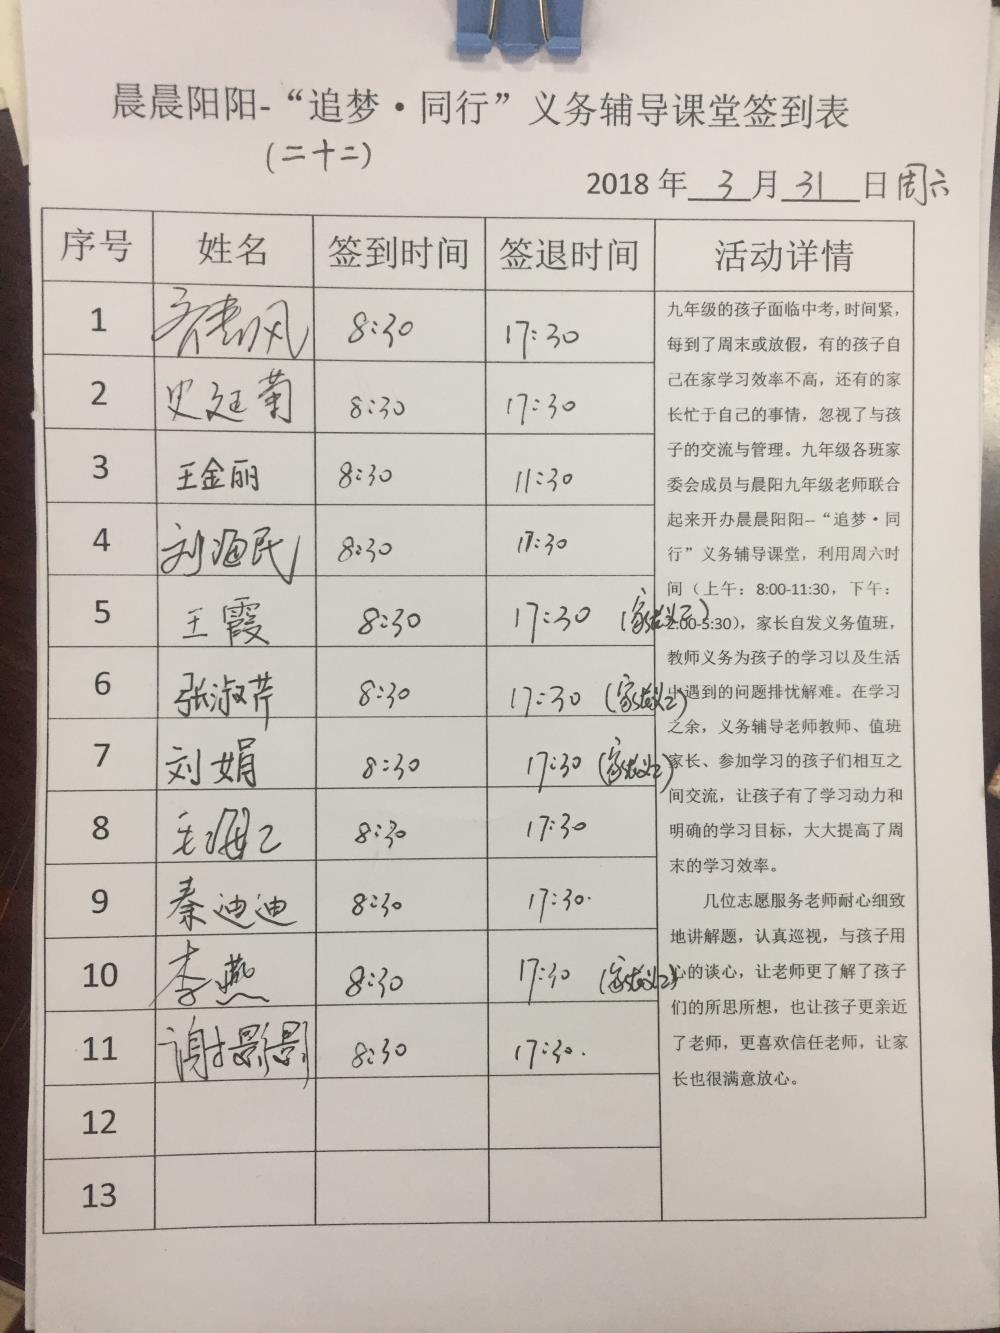 晨晨阳阳-“追梦·同行”义务辅导课堂签到表
(二十二)
2018 年 3 月 31 日 周六
序号 姓名 签到时间 签退时间 活动详情
1 8:30 17:30
2 史廷菊 8:30 17:30
3 王金丽 8:30 11:30
4 刘海民 8:30 17:30
5 王霞 8:30 17:30
6 张淑芹 8:30 17:30
7 刘娟 8:30 17:30
8 8:30 17:30
9 秦迪迪 8:30 17:30
10 李燕 8:30 17:30
11 谢影影 8:30 17:30
12
13
九年级的孩子面临中考，时间紧，
每到了周末或放假，有的孩子自
己在家学习效率不高，还有的家
长忙于自己的事情，忽视了与孩
子的交流与管理。九年级各班家
委会成员与晨阳九年级老师联合
起来开办晨晨阳阳--“追梦·同
行”义务辅导课堂，利用周六时
间（上午：8:00-11:30，下午：
2:00-5:30），家长自发义务值班，
教师义务为孩子的学习以及生活
中遇到的问题排忧解难。在学习
之余，义务辅导老师教师、值班
家长、参加学习的孩子们相互之
间交流，让孩子有了学习动力和
明确的学习目标，大大提高了周
末的学习效率。
几位志愿服务老师耐心细致
地讲解题，认真巡视，与孩子用
心的谈心，让老师更了解了孩子
们的所思所想，也让孩子更亲近
了老师，更喜欢信任老师，让家
长也很满意放心。